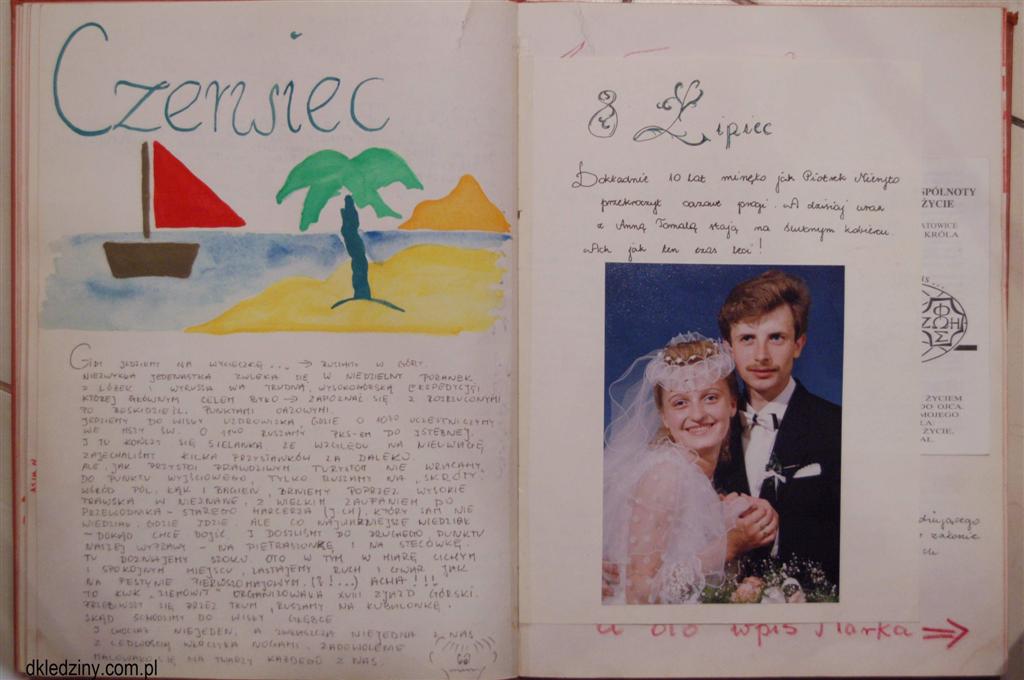 Czerwiec
GDY JEDZIEMY NA WYCIECZKĘ ... → RUSZAMY W GÓRY.
NIEZWYKŁA JEDENASTKA ZWLEKA SIĘ W NIEDZIELNY PORANEK
Z ŁÓŻEK I WYRUSZA NA TRUDNĄ, WYSOKOGÓRSKĄ EKSPEDYCJĘ
KTÓREJ GŁÓWNYM CELEM BYŁO → ZAPOZNAĆ SIĘ Z ROZRZUCONYMI
PO BESKIDZIE ŚL. PUNKTAMI OAZOWYMI.
JEDZIEMY DO WISŁY UZDROWISKA, GDZIE O 10 UCZESTNICZYMY
WE MSZY ŚW. O RUSZAMY PKS-EM DO ISTEBNEJ.
I TU KOŃCZY SIĘ SIELANKA ZE WZGLĘDU NA NIEUWAGĘ
ZAJECHALIŚMY KILKA PRZYSTANKÓW ZA DALEKO.
ALE JAK PRZYSTOI PRAWDZIWYM TURYSTOM NIE WRACAMY
DO PUNKTU WYJŚCIOWEGO, TYLKO RUSZAMY NA „SKRÓTY.”
WŚRÓD PÓL, ŁĄK I BAGIEN, BRNIEMY POPRZEZ WYSOKIE
TRAWSKA W NIEZNANE, Z WIELKIM ZAUFANIEM DO
PRZEWODNIKA - STAREGO HARCERZA (J.CH), KTÓRY SAM NIE
WIEDZIAŁ GDZIE IDZIE, ALE CO NAJWAŻNIEJSZE WIEDZIAŁ
- DOKĄD CHCE DOJŚĆ. I DOSZLIŚMY DO DRUGIEGO PUNKTU
NASZEJ WYPRAWY - NA PIETRASIONKĘ I NA STECÓWKĘ.
TU DOZNAJEMY SZOKU. OTO W TYM W MIARĘ CICHYM
I SPOKOJNYM MIEJSCU, ZASTAJEMY RUCH I GWAR JAK
NA FESTYNIE PIERWSZOMAJOWYM. (?!...) ACHA!!!
TO KWK „ZIEMOWIT” ORGANIZOWAŁA XVIII ZJAZD GÓRSKI.
PRZEBIWSZY SIĘ PRZEZ TŁUM, RUSZAMY NA KUBALONKĘ,
SKĄD SCHODZIMY DO WISŁY GŁĘBCE
I CHOCIAŻ NIEJEDEN, A ZWŁASZCZA NIEJEDNA Z NAS
Z LEDWOŚCIĄ WŁÓCZYŁA NOGAMI, ZADOWOLENIE
MALOWAŁO SIĘ NA TWARZY KAŻDEGO Z NAS.
8 Lipiec
Dokładnie 10 lat minęło jak Piotrek Niemyto
przekroczył oazowe progi. A dzisiaj wraz
z Anną Tomalą stają na ślubnym kobiercu.
Ach jak ten czas leci!
A oto wpis Marka ⇒
SPÓLNOTY
ŻYCIE
ATOWICE
KRÓLA
ŻYCIEM
DO OJCA.
MOJEGO
ŻYCIE,
dkledziny.com.pl